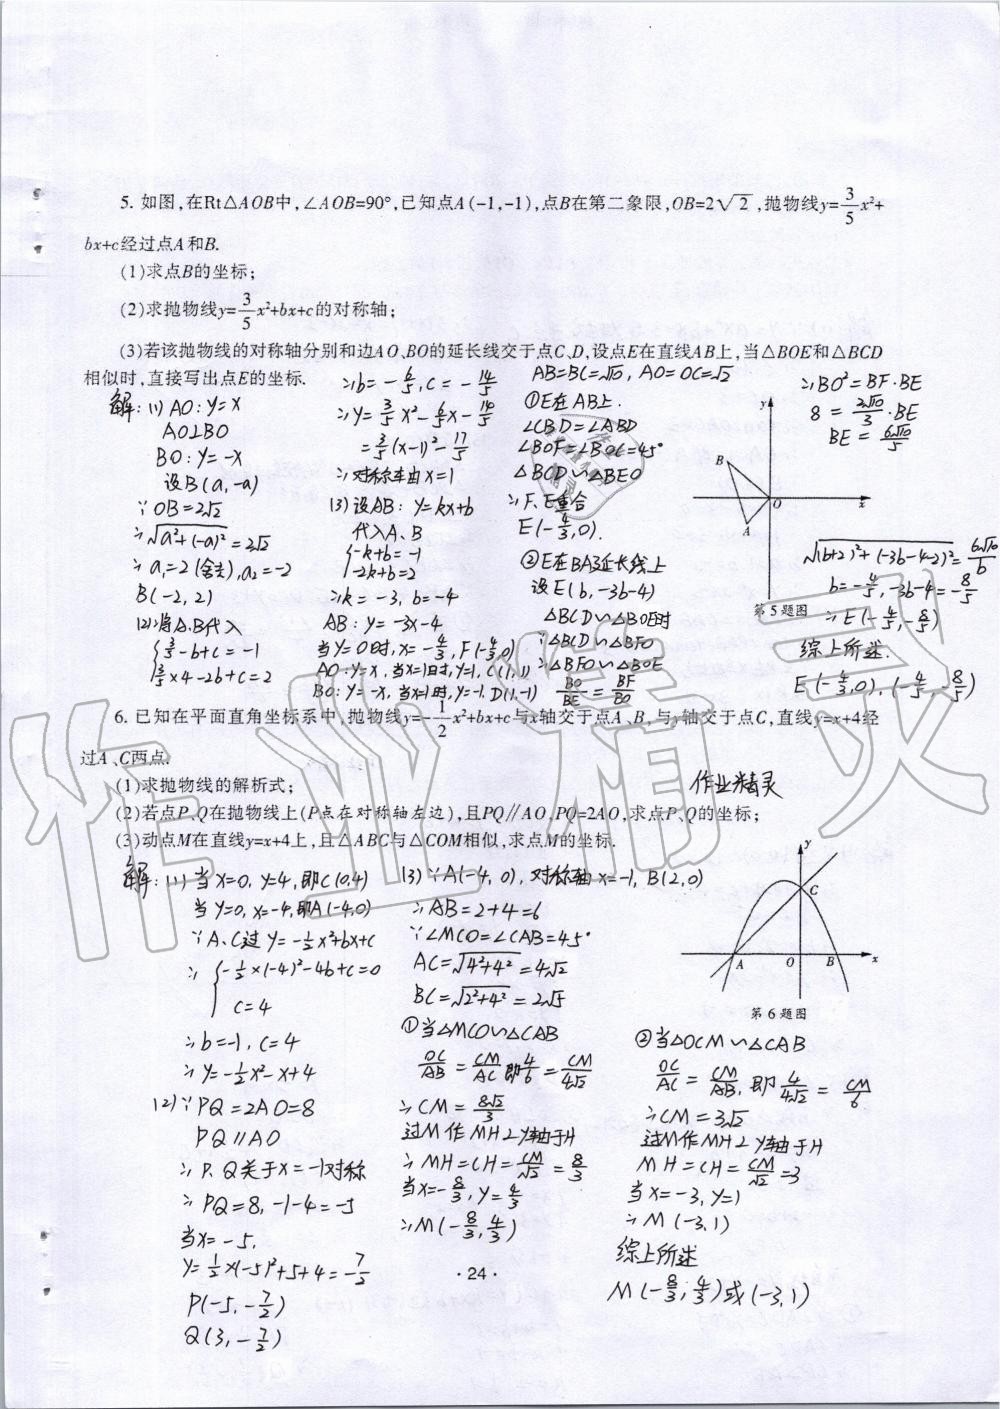 5. 如图,在Rt△AOB中,∠AOB=90°,已知点A(-1,-1),点B在第二象限,OB=2√2,抛物线y=3/5x²+
bx+c经过点A和B.
(1)求点B的坐标;
(2)求抛物线y=3/5x²+bx+c的对称轴;
(3)若该抛物线的对称轴分别和边AO、BO的延长线交于点C、D,设点E在直线AB上,当△BOE和△BCD
相似时,直接写出点E的坐标.
解:(1) AO:y=x
AO⊥BO
BO:y=-x
设B(a,-a)
∵OB=2√2
∴√(a²+(-a)²)=2√2
∴a₁=2(舍去),a₂=-2
B(-2,2)
(2)将A.B代入
{3/5-b+c=-1
3/5×4-2b+c=2
∴b=-6/5,c=-14/5
∴y=3/5x²-6/5x-14/5
=3/5(x-1)²-17/5
∴对称轴x=1
(3)设AB:y=kx+b
代入A、B
{-k+b=-1
-2k+b=2
∴k=-3,b=-4
AB:y=-3x-4
当y=0时,x=-4/3,F(-4/3,0)
AO:y=x,当x=1时,y=1,C(1,1)
BO:y=-x,当x=1时,y=-1,D(1,-1)
AB=BC=√10,AO=OC=√2
①E在AB上.
∠CBD=∠ABD
∠BOF=∠BOC=45°
△BCD∽△BEO
∴F、E重合
E(-4/3,0).
②E在BA延长线上
设E(b,-3b-4)
△BCD∽△BOE时
∵△BCD∽△BFO
∴△BFO∽△BOE
BO/BE=BF/BO
∴BO²=BF·BE
8=2√10/3·BE
BE=6√10/5
y
B
O
x
A
第5题图
√((b+2)²+(-3b-4-2)²)=6√10/b
b=-4/5,-3b-4=-8/5
∴E(-4/5,-8/5)
综上所述.
E(-4/3,0).(-4/5,-8/5)
6. 已知在平面直角坐标系中,抛物线y=-1/2x²+bx+c与x轴交于点A、B,与y轴交于点C,直线y=x+4经
过A、C两点.
(1)求抛物线的解析式;
(2)若点P、Q在抛物线上(P点在对称轴左边),且PQ∥AO,PQ=2AO,求点P、Q的坐标;
(3)动点M在直线y=x+4上,且△ABC与△COM相似,求点M的坐标.
作业精灵
解:(1)当x=0,y=4,即C(0,4)
当y=0,x=-4,即A(-4,0)
∵A、C过y=-1/2x²+bx+c
∴{-1/2×(-4)²-4b+c=0
c=4
∴b=-1,c=4
∴y=-1/2x²-x+4
(2)∵PQ=2AO=8
PQ∥AO
∴P、Q关于x=-1对称
∴PQ=8,-1-4=-5
当x=-5,
y=1/2×(-5)²+5+4=-7/2
P(-5,-7/2)
Q(3,-7/2)
(3)∵A(-4,0),对称轴x=-1,B(2,0)
∴AB=2+4=6
∵∠MCO=∠CAB=45°
AC=√(4²+4²)=4√2
BC=√(2²+4²)=2√5
①当△MCO∽△CAB
OC/AB=CM/AC即4/6=CM/4√2
∴CM=8√2/3
过M作MH⊥y轴于H
∴MH=CH=CM/√2=8/3
当x=-8/3,y=4/3
∴M(-8/3,4/3)
y
C
A
O
B
x
第6题图
②当△OCM∽△CAB
OC/AC=CM/AB,即4/4√2=CM/6
∴CM=3√2
过M作MH⊥y轴于H
MH=CH=CM/√2=3
当x=-3,y=1
∴M(-3,1)
综上所述
M(-8/3,4/3)或(-3,1)
·24·
作业精灵